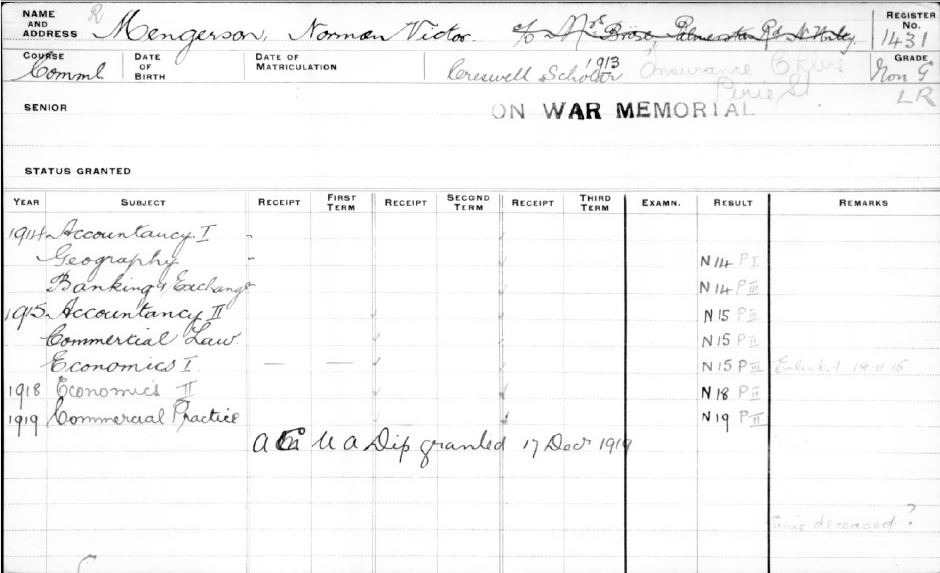 NAME AND ADDRESS R Mengerson, Norman Victor c/o Mrs Palmerston Rd REGISTER No. 1431
COURSE Comml DATE OF BIRTH DATE OF MATRICULATION Creswell Scholar 1913 Insurance Pirie St GRADE Non G
LR
SENIOR ON WAR MEMORIAL
STATUS GRANTED
YEAR SUBJECT RECEIPT FIRST TERM RECEIPT SECOND TERM RECEIPT THIRD TERM EXAMN. RESULT REMARKS
1914 Accountancy I -
Geography - N 14 P I
Banking & Exchange N 14 P III
1915 Accountancy II N 15 P III
Commercial Law. N 15 P II
Economics I — — N 15 P III Enlisted 18.11.15
1918 Economics II N 18 P II
1919 Commercial Practice N 19 P II
A U A Dip granted 17 Decr 1919
Since deceased ?